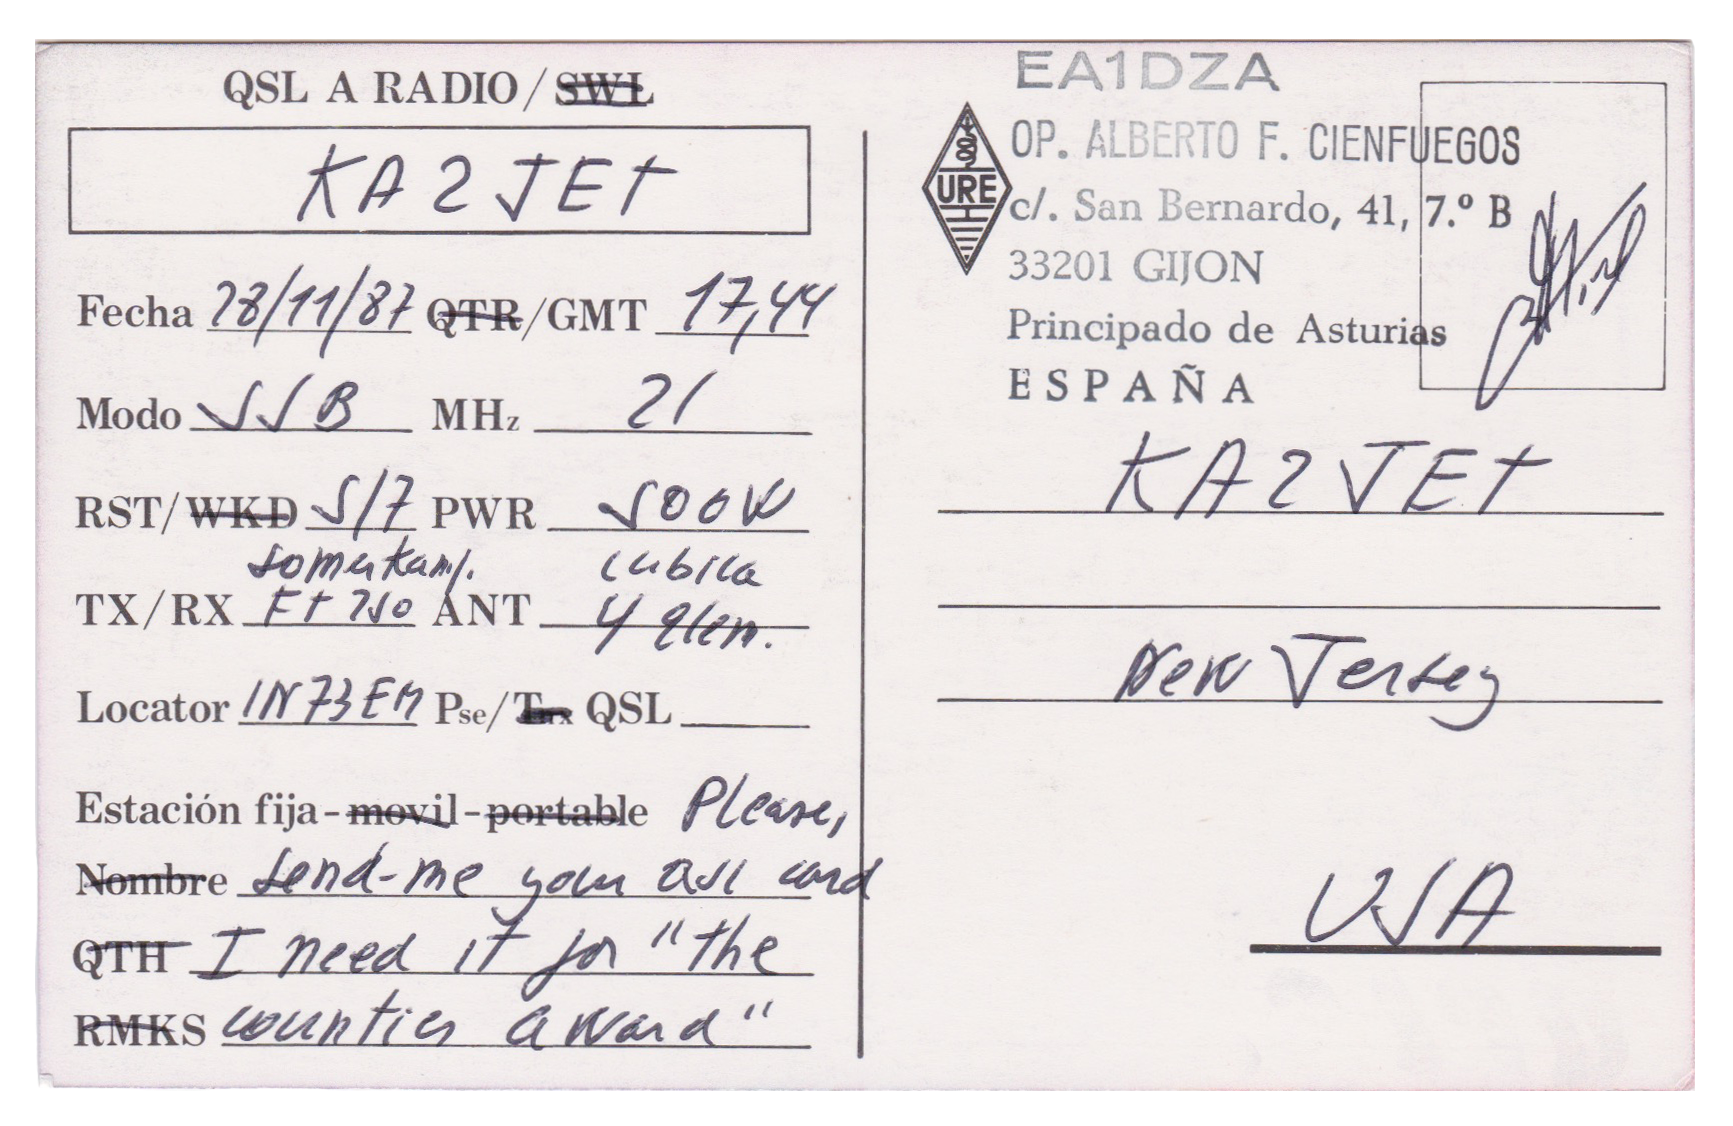 QSL A RADIO/SWL
KA2JET
Fecha 28/11/87 QTR/GMT 17,44
Modo SSB MHz 21
RST/WKD 5/7 PWR 500W
Somerkamp. cubica
TX/RX FT 250 ANT 4 elem.
Locator IN73EM Pse/Tnx QSL
Estación fija-movil-portable Please,
Nombre send-me your QSL card
QTH I need it for "the
RMKS counties award"
EA1DZA
OP. ALBERTO F. CIENFUEGOS
URE
c/. San Bernardo, 41, 7.º B
33201 GIJON
Principado de Asturias
ESPAÑA
KA2JET
New Jersey
USA